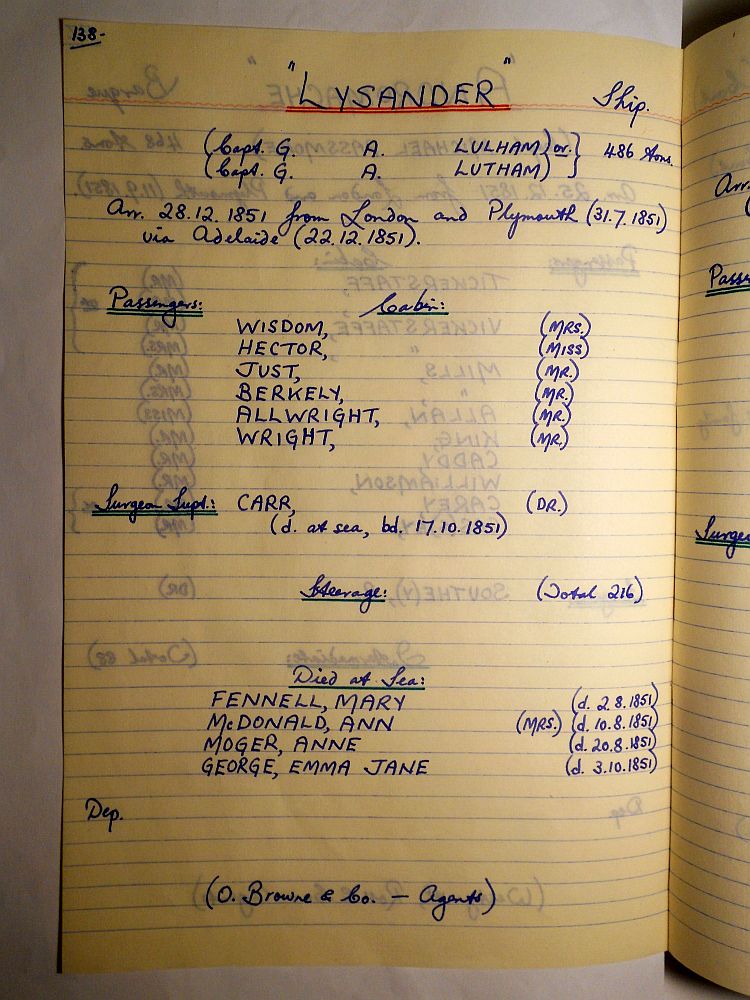 138-
"LYSANDER"
Ship.
(Capt. G. A. LULHAM) or } 486 tons.
(Capt. G. A. LUTHAM)
Arr. 28.12.1851 from London and Plymouth (31.7.1851)
via Adelaide (22.12.1851).
Passengers: Cabin:
WISDOM, (MRS.)
HECTOR, (MISS)
JUST, (MR.)
BERKELY, (MR.)
ALLWRIGHT, (MR.)
WRIGHT, (MR.)
Surgeon Supt.: CARR, (DR.)
(d. at sea, bd. 17.10.1851)
Steerage: (Total 216)
Died at Sea:
FENNELL, MARY (d. 2.8.1851)
McDONALD, ANN (MRS.) (d. 10.8.1851)
MOGER, ANNE (d. 20.8.1851)
GEORGE, EMMA JANE (d. 3.10.1851)
Dep.
(O. Browne & Co. — Agents)
Arr.